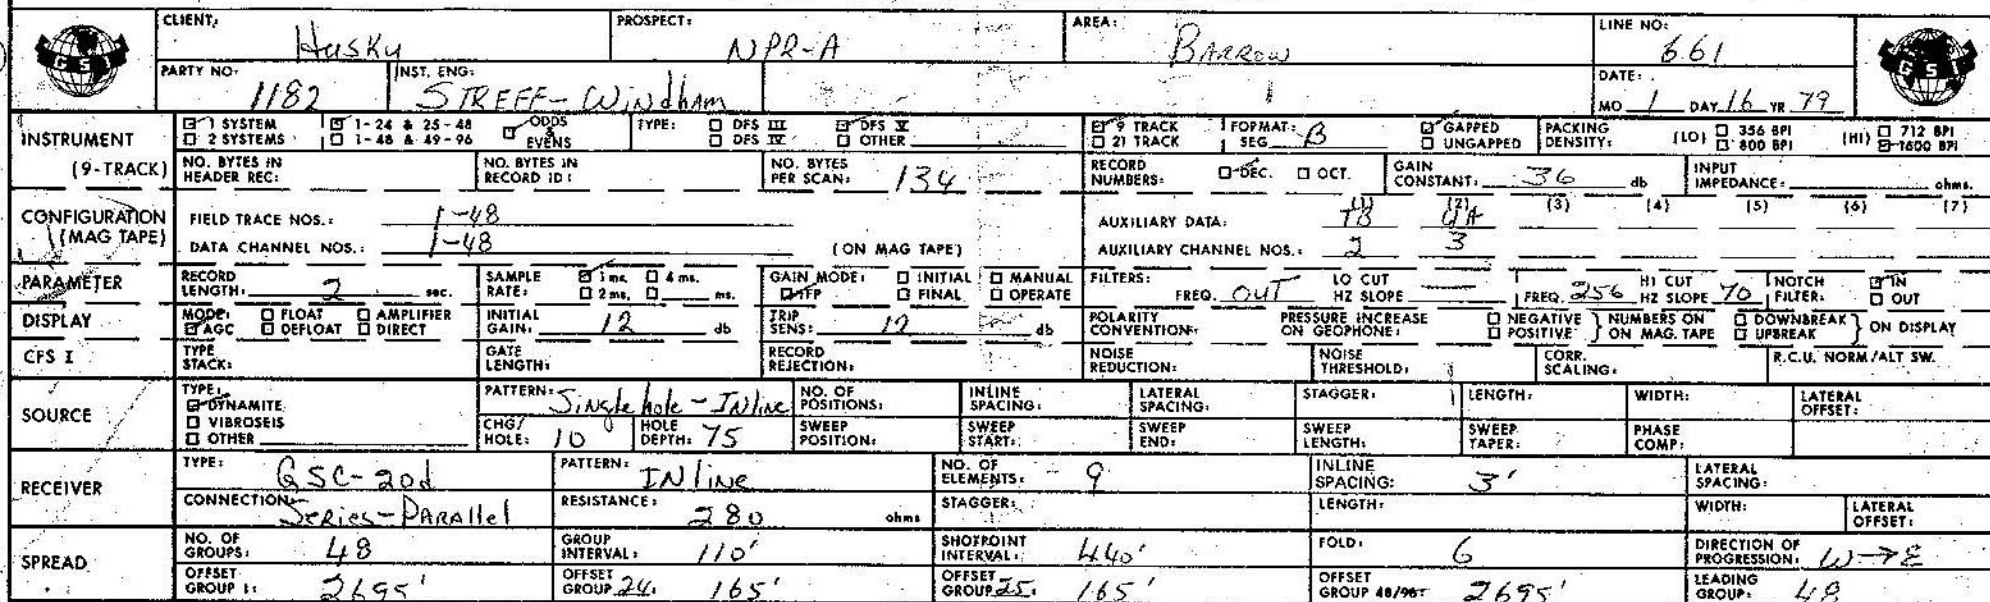 CLIENT: Husky PROSPECT: NPR-A AREA: BARROW LINE NO: 661
GSI
PARTY NO: 1182 INST. ENG: STREFF-Windham DATE: MO 1 DAY 16 YR 79
GSI
INSTRUMENT (9-TRACK)
☑ 1 SYSTEM ☑ 1-24 & 25-48 ☑ ODDS & EVENS TYPE: ☐ DFS III ☑ DFS V ☑ 9 TRACK FORMAT: SEG B ☑ GAPPED PACKING DENSITY: (LO) ☐ 356 BPI (HI) ☐ 712 BPI
☐ 2 SYSTEMS ☐ 1-48 & 49-96 ☐ DFS IV ☐ OTHER ☐ 21 TRACK ☐ UNGAPPED ☐ 800 BPI ☑ 1600 BPI
NO. BYTES IN HEADER REC: NO. BYTES IN RECORD ID: NO. BYTES PER SCAN: 134 RECORD NUMBERS: ☑ DEC. ☐ OCT. GAIN CONSTANT: 36 db INPUT IMPEDANCE: ohms.
CONFIGURATION (MAG TAPE)
(1) (2) (3) (4) (5) (6) (7)
FIELD TRACE NOS.: 1-48 AUXILIARY DATA: TB
DATA CHANNEL NOS.: 1-48 (ON MAG TAPE) AUXILIARY CHANNEL NOS.: 2 3
PARAMETER
RECORD LENGTH: 2 sec. SAMPLE RATE: ☑ 1 ms. ☐ 4 ms. ☐ 2 ms. ☐ ms. GAIN MODE: ☐ INITIAL ☐ MANUAL ☑ IFP ☐ FINAL ☐ OPERATE FILTERS: FREQ. OUT LO CUT HZ SLOPE FREQ. 256 HI CUT HZ SLOPE 70 NOTCH FILTER: ☑ IN ☐ OUT
DISPLAY
MODE: ☐ FLOAT ☐ AMPLIFIER ☑ AGC ☐ DEFLOAT ☐ DIRECT INITIAL GAIN: 12 db TRIP SENS: 12 db POLARITY CONVENTION: PRESSURE INCREASE ON GEOPHONE: ☐ NEGATIVE ☐ POSITIVE } NUMBERS ON ON MAG. TAPE ☐ DOWNBREAK ☐ UPBREAK } ON DISPLAY
CFS I
TYPE STACK: GATE LENGTH: RECORD REJECTION: NOISE REDUCTION: NOISE THRESHOLD: CORR. SCALING: R.C.U. NORM/ALT SW.
SOURCE
TYPE: ☑ DYNAMITE ☐ VIBROSEIS ☐ OTHER
PATTERN: Single hole - INline NO. OF POSITIONS: INLINE SPACING: LATERAL SPACING: STAGGER: LENGTH: WIDTH: LATERAL OFFSET:
CHG/HOLE: 10 HOLE DEPTH: 75 SWEEP POSITION: SWEEP START: SWEEP END: SWEEP LENGTH: SWEEP TAPER: PHASE COMP:
RECEIVER
TYPE: GSC-20d PATTERN: INline NO. OF ELEMENTS: 9 INLINE SPACING: 3' LATERAL SPACING:
CONNECTION: Series-Parallel RESISTANCE: 280 ohms STAGGER: LENGTH: WIDTH: LATERAL OFFSET:
SPREAD
NO. OF GROUPS: 48 GROUP INTERVAL: 110' SHOTPOINT INTERVAL: 440' FOLD: 6 DIRECTION OF PROGRESSION: W→E
OFFSET GROUP 1: 2695' OFFSET GROUP 24: 165' OFFSET GROUP 25: 165' OFFSET GROUP 48/96: 2695' LEADING GROUP: 48